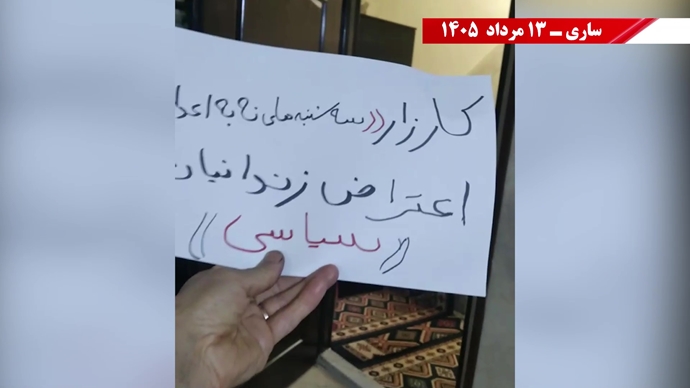 ساری ـ ۱۳ مرداد ۱۴۰۵
کارزار ((سه شنبه های نه به اعدا
اعتراض زندانیان
((سیاسی))